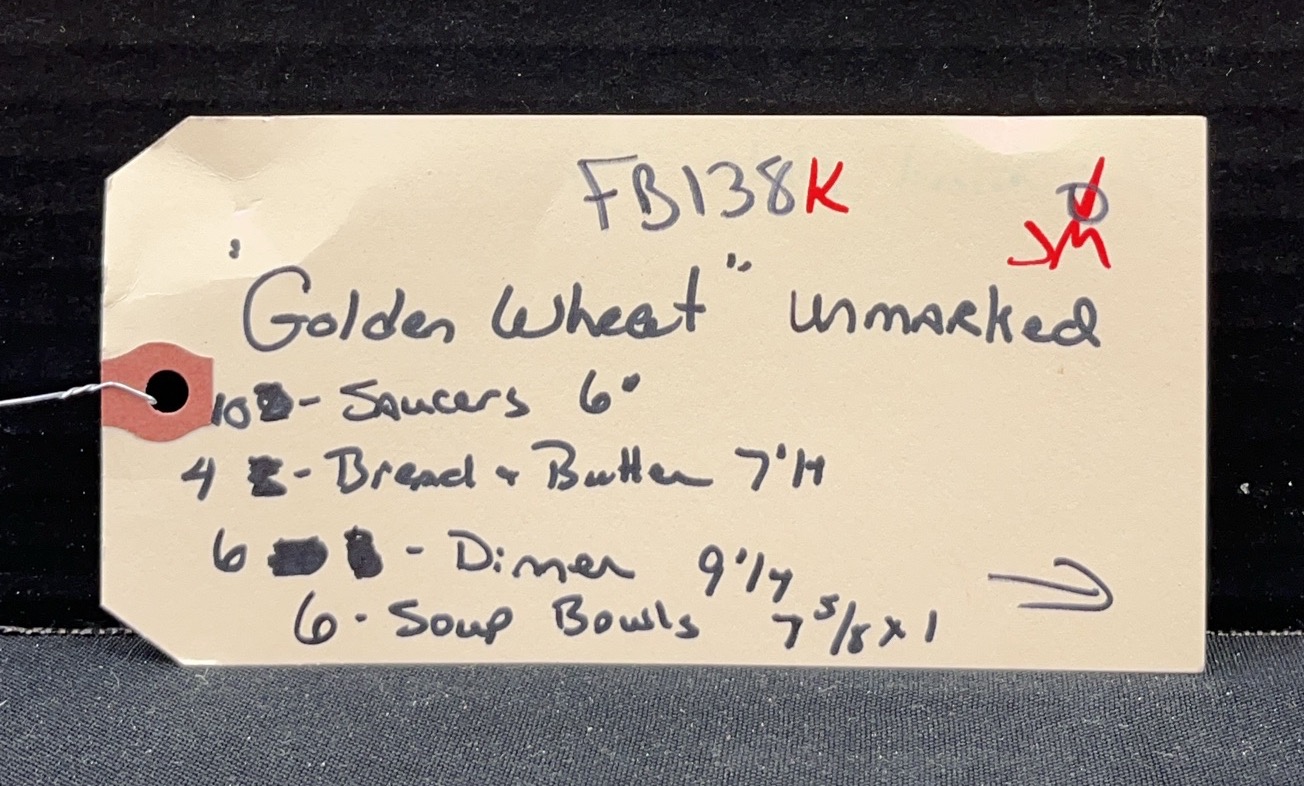 FB138K
JM
"Golden Wheat" unmarked
10 - Saucers 6"
4 - Bread + Butter 7 1/4
6 - Dinner 9 1/4
6 - Soup Bowls 7 5/8 x 1